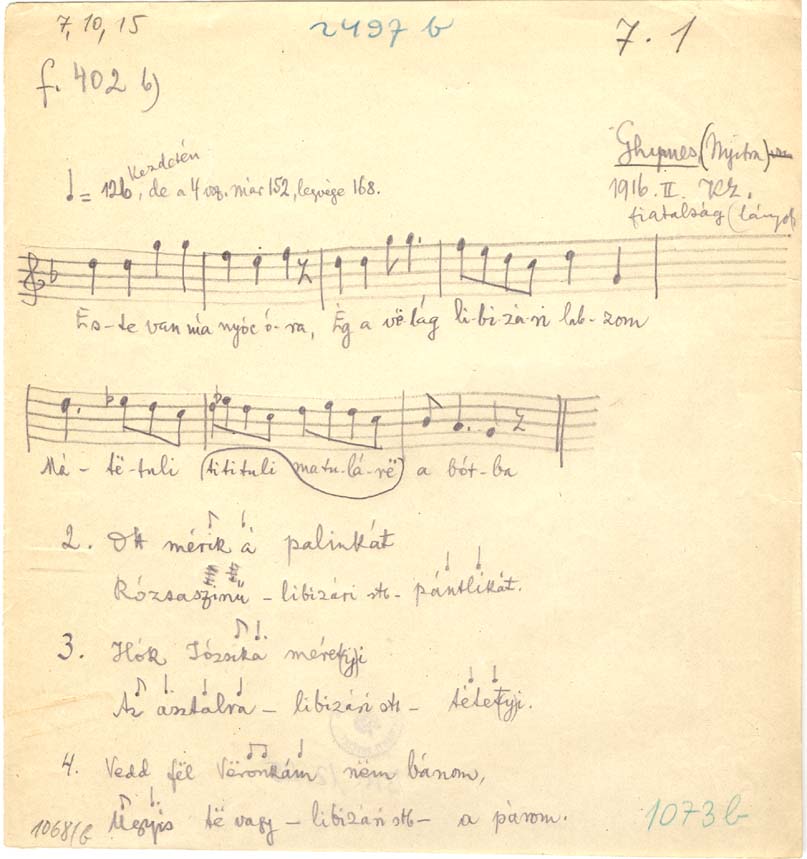 7, 10, 15
2497 b
7. 1
f. 402 b)
Ghymes (Nyitra)
1916. II. KZ.
fiatalság (lányok
Kezdetén
= 126, de a 4 vsz. már 152, legvége 168.
Es-te van ma nyóc ó-ra, Ég a vëlág li-bi-zá-ri lab-zom
Má-të-tuli (titituli matu-lá-rë) a bót-ba
2. Ott mérik á palinkát
Rózsaszinű - libizári stb - pántlikát.
3. Hók Józsika méretyji
Az asztalra - libizári stb - tétetyji.
4. Vedd fël Vëronkám nëm bánom,
Ugyis të vagy - libizári stb - a párom.
1068/b
1073 b